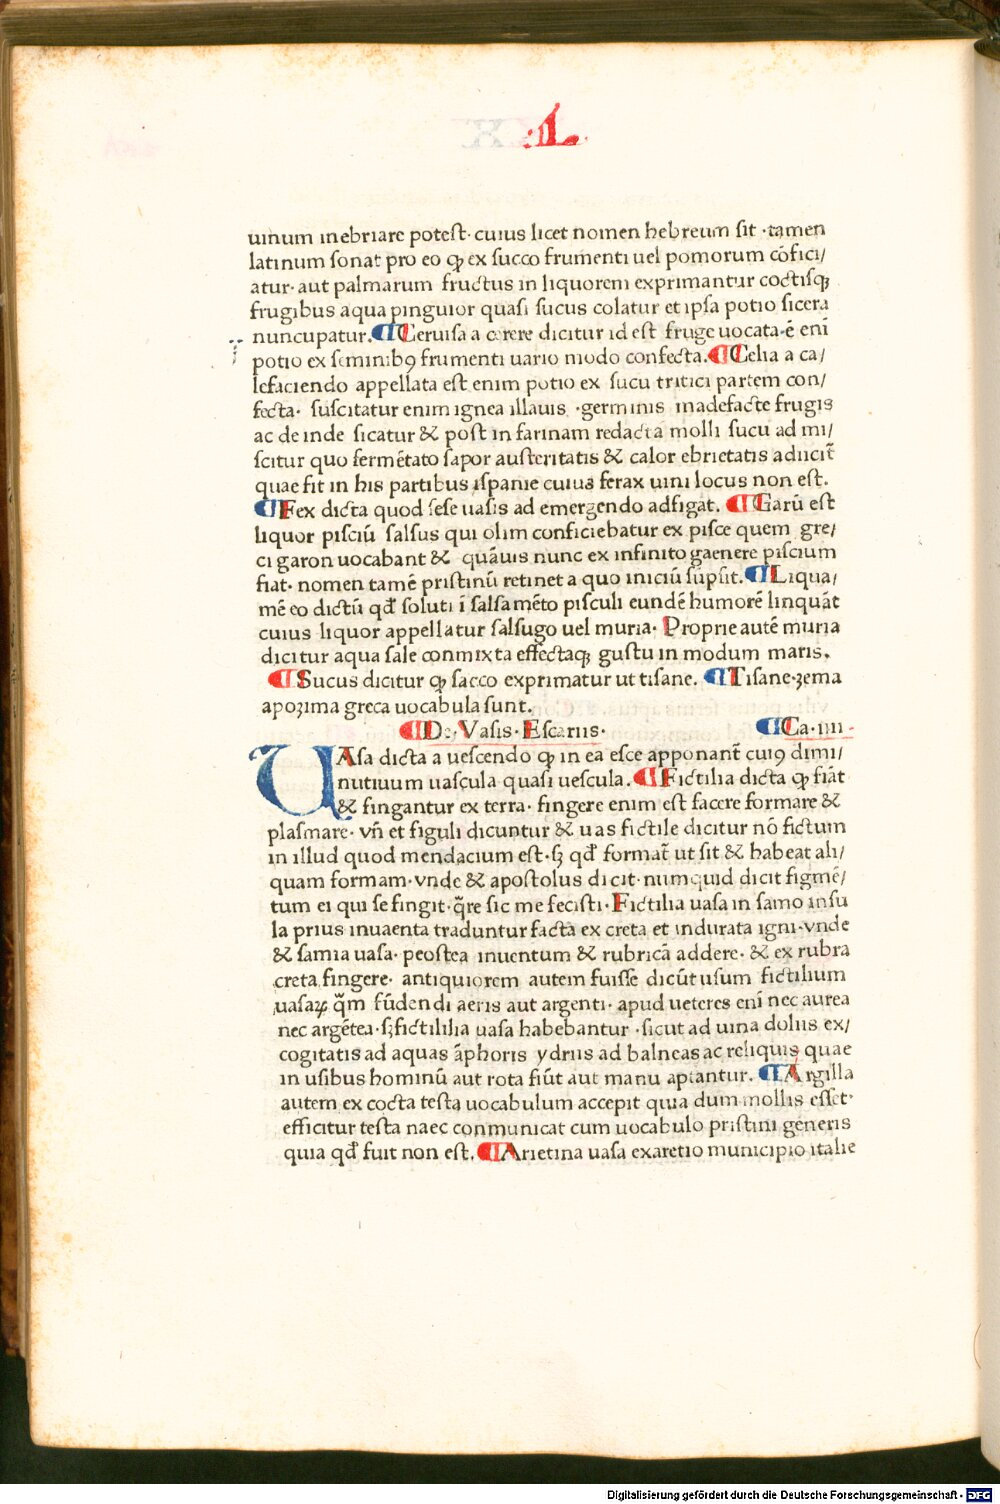 ·L·
uinum inebriare potest· cuius licet nomen hebreum sit ·tamen
latinum sonat pro eo qꝫ ex succo frumenti uel pomorum cōfici/
atur· aut palmarum fructus in liquorem exprimantur coctisqꝫ
frugibus aqua pinguior quasi sucus colatur et ipsa potio sicera
nuncupatur. ¶Ceruisa a cerere dicitur id est fruge uocata·ē eni
potio ex seminibꝯ frumenti uario modo confecta. ¶Celia a ca/
lefaciendo appellata est enim potio ex sucu tritici partem con/
fecta· suscitatur enim ignea illauis ·germinis madefacte frugis
ac de inde sicatur & post in farinam redacta molli sucu ad mi/
scitur quo fermētato sapor austeritatis & calor ebrietatis adiicit̄
quae fit in his partibus ispanie cuius ferax uini locus non est.
¶Fex dicta quod sese uasis ad emergendo adfigat. ¶Garū est
liquor pisciū salsus qui olim conficiebatur ex pisce quem gre/
ci garon uocabant & quāuis nunc ex infinito gaenere piscium
fiat· nomen tamē pristinū retinet a quo iniciū sūpsit. ¶Liqua/
mē eo dictū qđ soluti ī salsamēto pisculi eundē humorē linquāt
cuius liquor appellatur salsugo uel muria· Proprie autē muria
dicitur aqua sale conmixta effectaqꝫ gustu in modum maris.
¶Sucus dicitur qꝫ sacco exprimatur ut tisane. ¶Tisane·zema
apozima greca uocabula sunt.
¶De·Vasis·Escariis· ¶Ca·iiii·
UAsa dicta a uescendo qꝫ in ea esce apponant̄ cuiꝯ dimi/
nutiuum uascula quasi uescula. ¶Fictilia dicta qꝫ fiāt
& fingantur ex terra· fingere enim est facere formare &
plasmare· vn̄ et figuli dicuntur & uas fictile dicitur nō fictum
in illud quod mendacium est·sꝫ qđ format̄ ut sit & habeat ali/
quam formam·vnde & apostolus dicit·numquid dicit figmē/
tum ei qui se fingit·q̄re sic me fecisti·Fictilia uasa in samo insu
la prius inuaenta traduntur facta ex creta et indurata igni·vnde
& samia uasa· peostea inuentum & rubricā addere· & ex rubra
creta fingere· antiquiorem autem fuisse dicūt usum fictilium
uasaꝝ q̄m fūdendi aeris aut argenti· apud ueteres enī nec aurea
nec argētea·sꝫ fictililia uasa habebantur ·sicut ad uina doliis ex/
cogitatis ad aquas āphoris ydriis ad balneas ac reliquis quae
in usibus hominū aut rota fiūt aut manu aptantur. ¶Argilla
autem ex cocta testa uocabulum accepit quia dum mollis esset·
efficitur testa naec conmunicat cum uocabulo pristini generis
quia qđ fuit non est. ¶Arietina uasa exaretio municipio italie
Digitalisierung gefördert durch die Deutsche Forschungsgemeinschaft - DFG